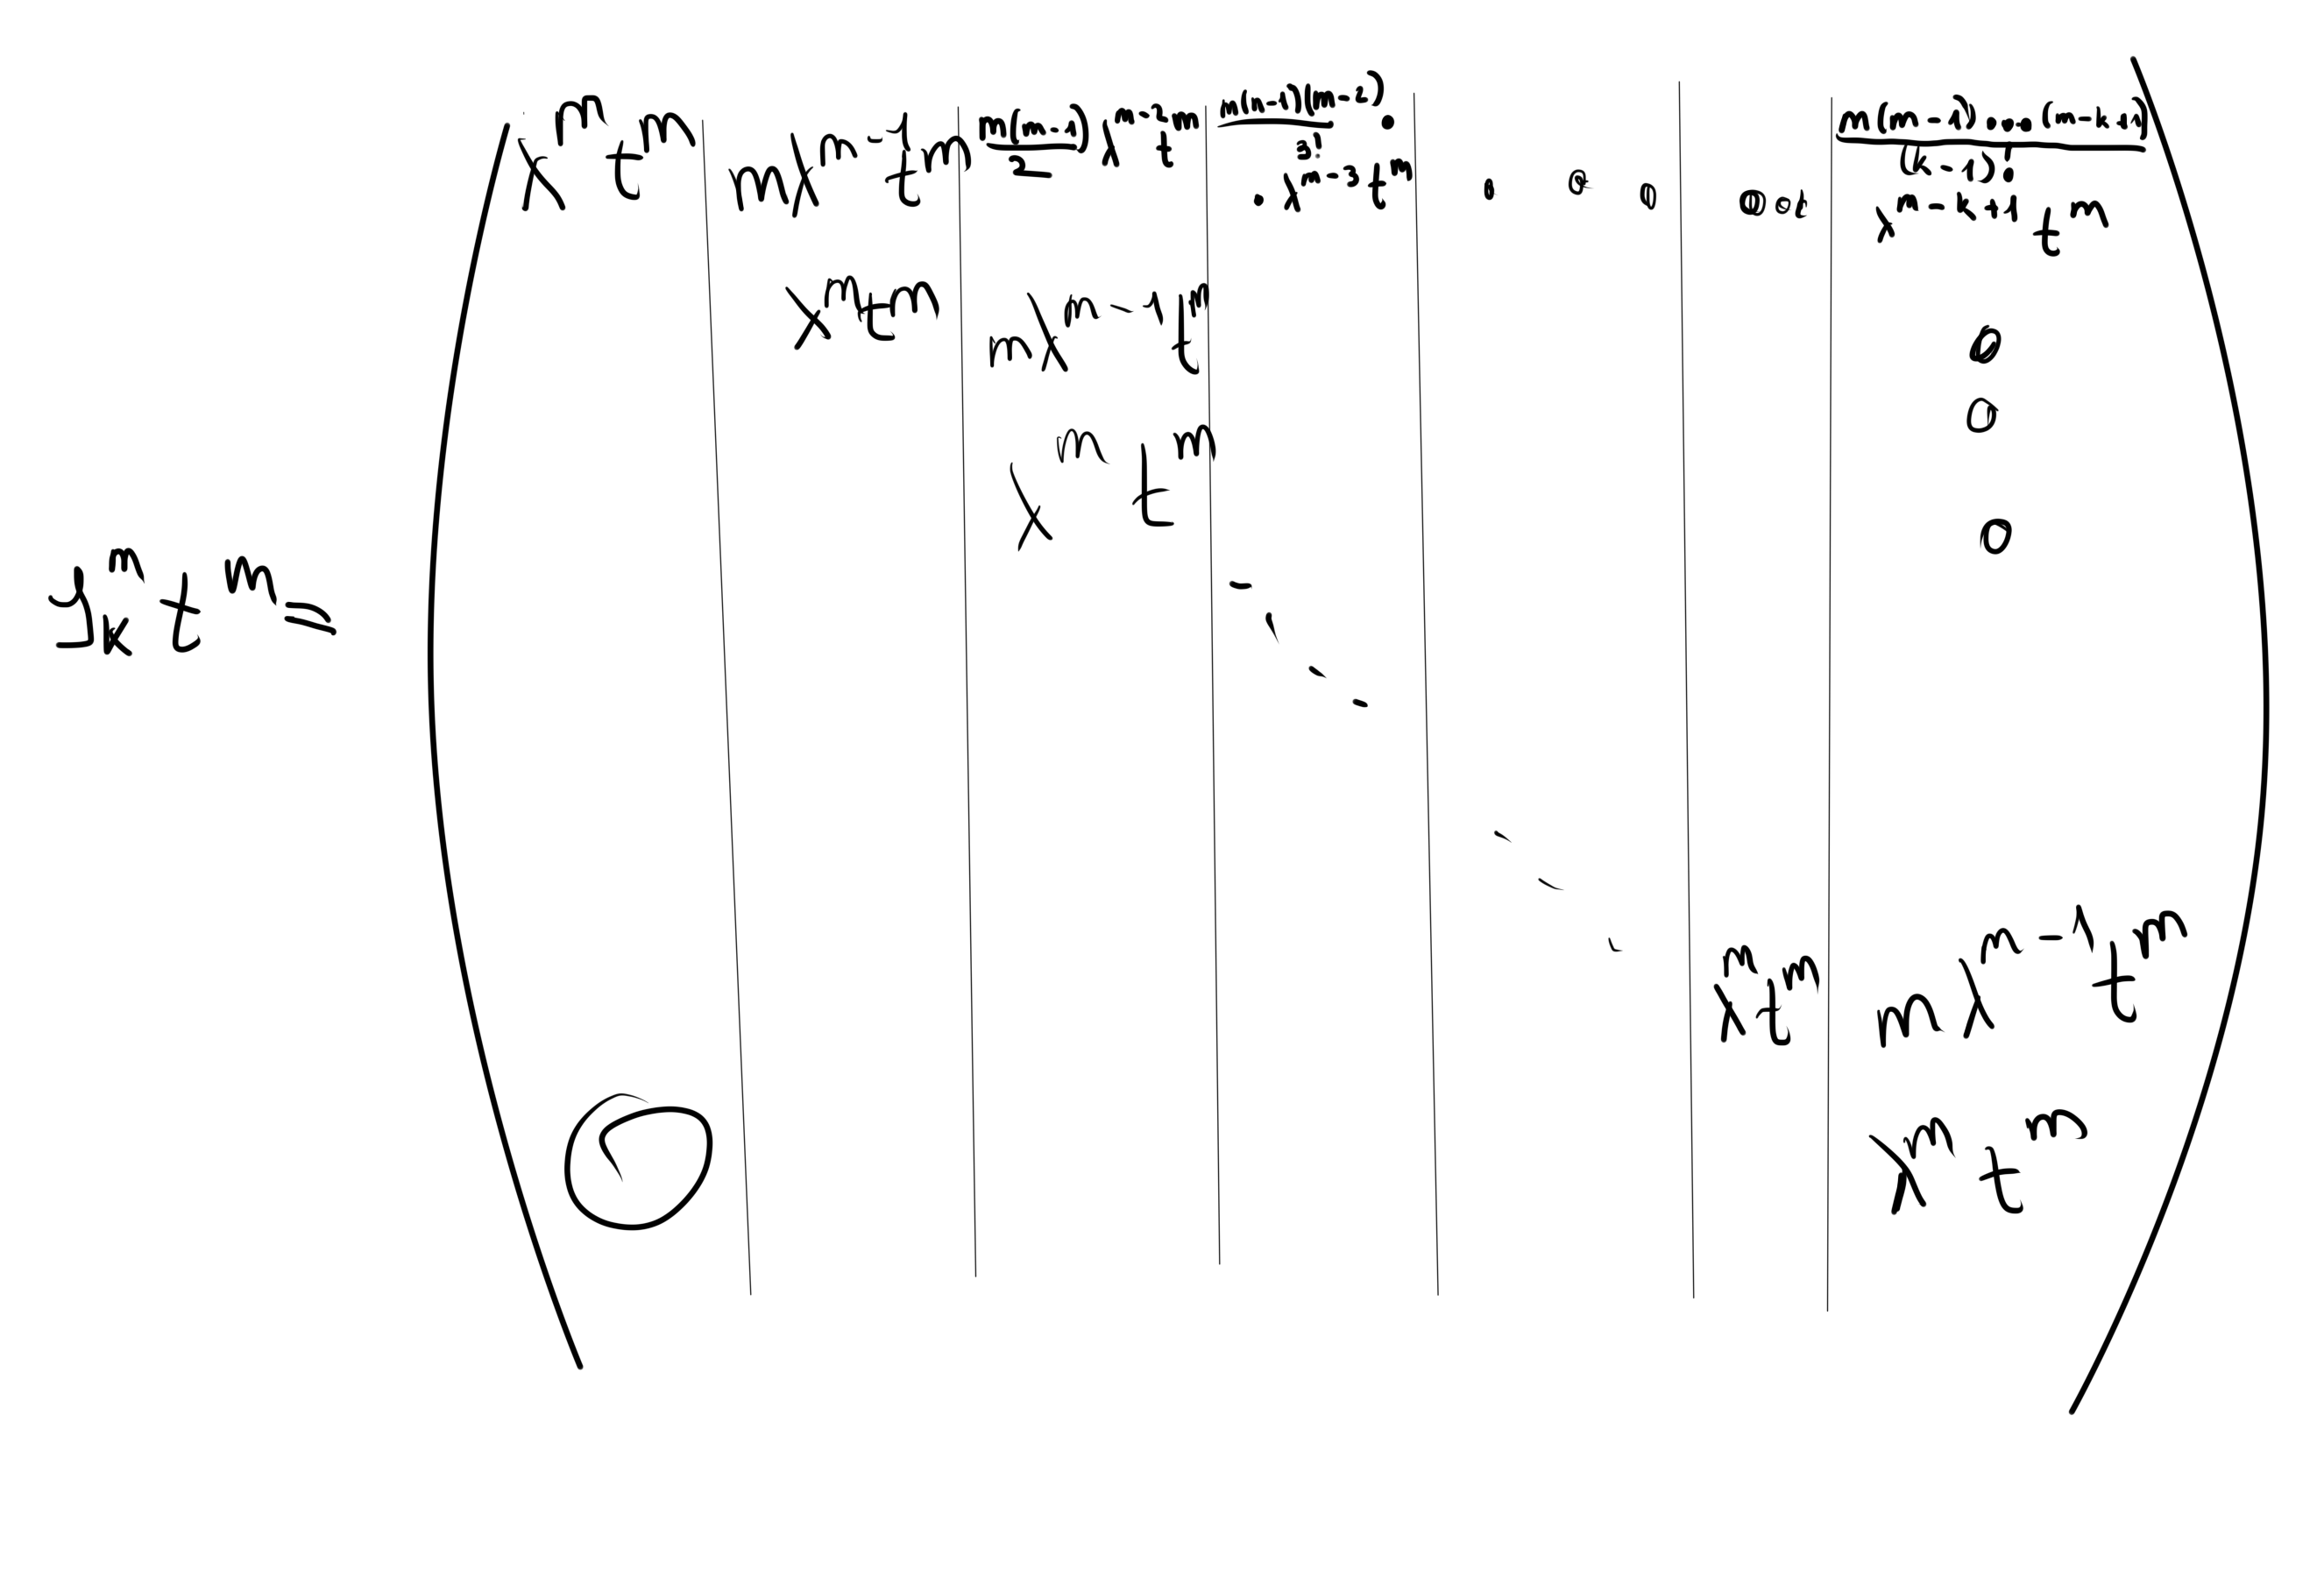 λ^m t^m | mλ^{m-1} t^m | \frac{m(m-1)}{2} λ^{m-2} t^m | \frac{m(m-1)(m-2)}{3!} · · λ^{m-3} t^m | . . . | . . . | \frac{m(m-1)...(m-k+1)}{(k-1)!} λ^{m-k+1} t^m
λ^m t^m | mλ^{m-1} t^m
λ^m t^m
J_k^m t^m =
λ^m t^m | mλ^{m-1} t^m
0 | λ^m t^m